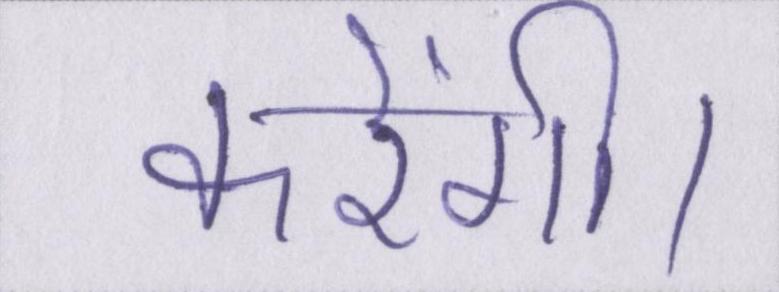 करेंगी।